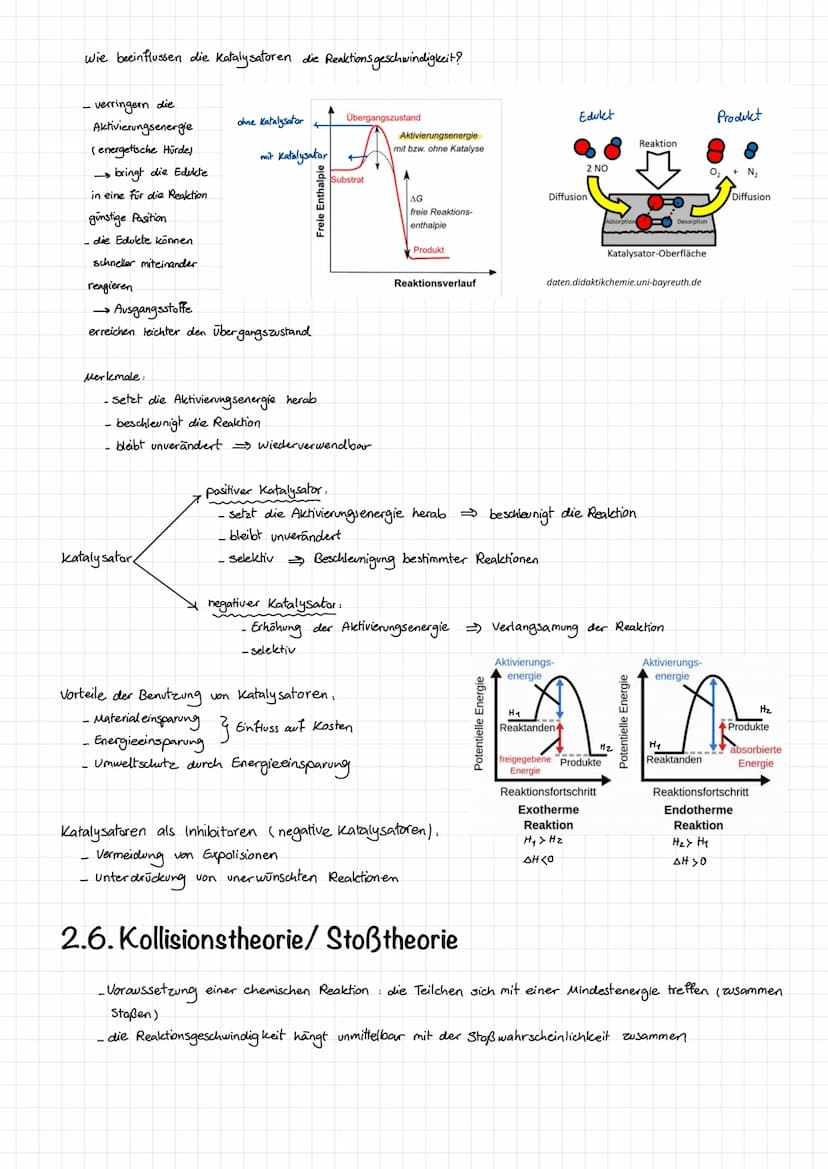 Wie beeinflussen die Katalysatoren die Reaktionsgeschwindigkeit?
- verringern die
Aktivierungsenergie
(energetische Hürde)
→ bringt die Edukte
in eine für die Reaktion
günstige Position
- die Edukte können
schneller miteinander
reagieren
→ Ausgangsstoffe
erreichen leichter den Übergangszustand
ohne Katalysator
mit Katalysator
Übergangszustand
Aktivierungsenergie
mit bzw. ohne Katalyse
Substrat
Freie Enthalpie
ΔG
freie Reaktions-
enthalpie
Produkt
Reaktionsverlauf
Edukt
Produkt
Reaktion
2 NO
O₂ + N₂
Diffusion
Diffusion
Adsorption
Desorption
Katalysator-Oberfläche
daten.didaktikchemie.uni-bayreuth.de
Merkmale:
- setzt die Aktivierungsenergie herab
- beschleunigt die Reaktion
- bleibt unverändert ⇒ wiederverwendbar
Katalysator
positiver Katalysator:
- setzt die Aktivierungsenergie herab ⇒ beschleunigt die Reaktion
- bleibt unverändert
- selektiv ⇒ Beschleunigung bestimmter Reaktionen
negativer Katalysator:
- Erhöhung der Aktivierungsenergie ⇒ Verlangsamung der Reaktion
- selektiv
Vorteile der Benutzung von Katalysatoren:
- Materialeinsparung
- Energieeinsparung } Einfluss auf Kosten
- Umweltschutz durch Energieeinsparung
Potentielle Energie
Aktivierungs-
energie
H₁
Reaktanden
freigegebene
Energie
H₂
Produkte
Reaktionsfortschritt
Exotherme
Reaktion
H₁ > H₂
ΔH<0
Potentielle Energie
Aktivierungs-
energie
H₂
Produkte
H₁
Reaktanden
absorbierte
Energie
Reaktionsfortschritt
Endotherme
Reaktion
H₂ > H₁
ΔH >0
Katalysatoren als Inhibitoren (negative Katalysatoren):
- Vermeidung von Expolisionen
- Unterdrückung von unerwünschten Reaktionen
2.6. Kollisionstheorie/ Stoßtheorie
- Voraussetzung einer chemischen Reaktion : die Teilchen sich mit einer Mindestenergie treffen (zusammen
stoßen)
- die Reaktionsgeschwindigkeit hängt unmittelbar mit der Stoßwahrscheinlichkeit zusammen